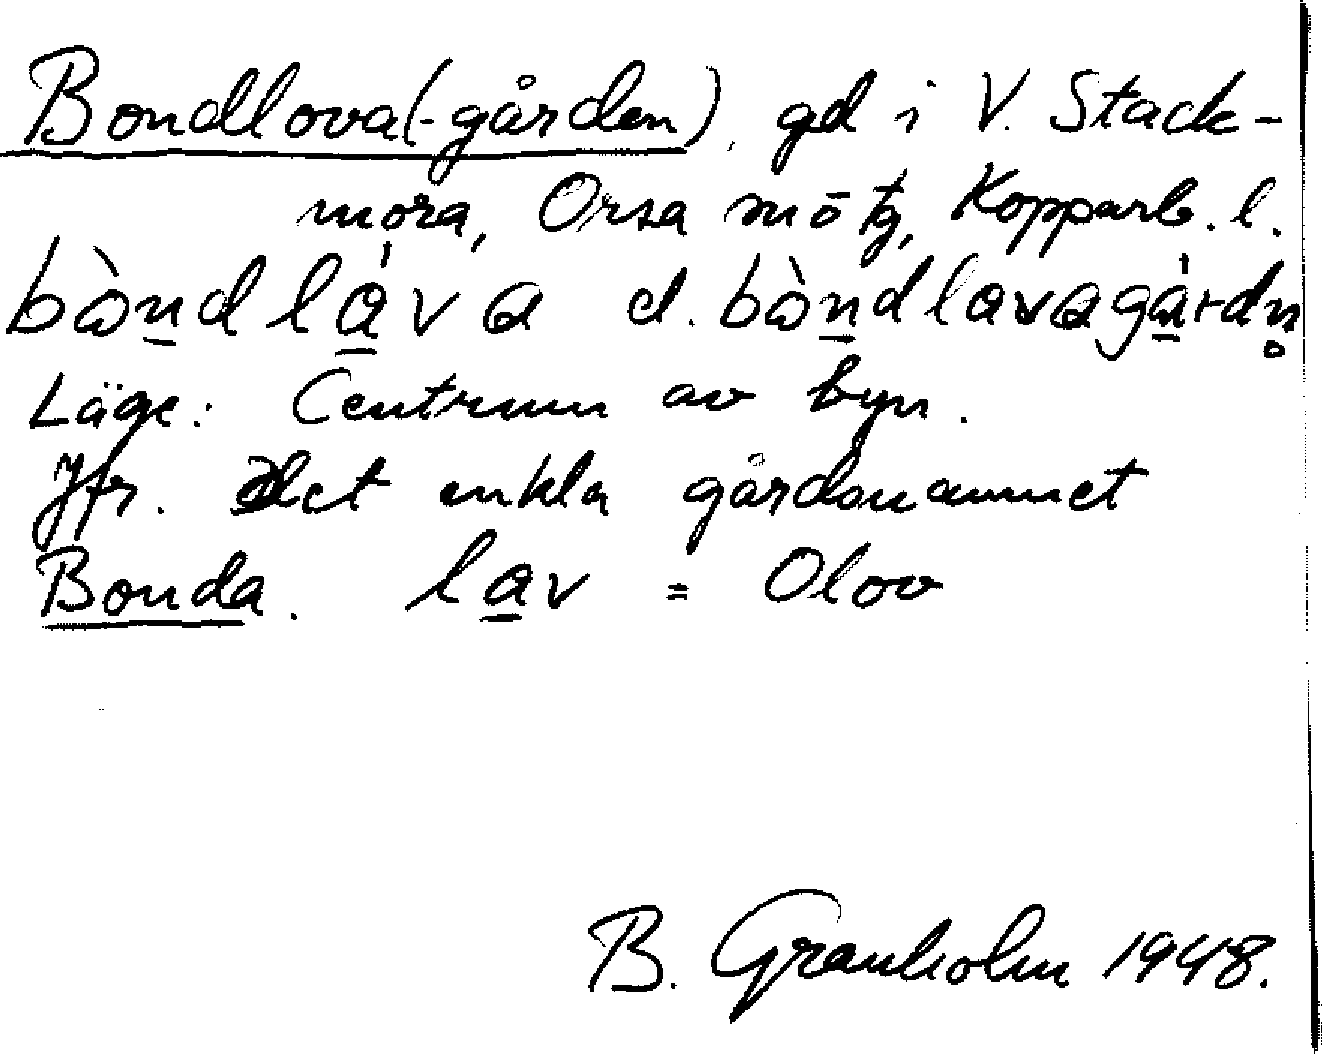 Bondlova(-gården), gd i V. Stack-
mora, Orsa sn o tg, Kopparb. l.
bòndláva el. bòndlavagárdn̥
Läge: Centrum av byn.
Jfr. det enkla gårdsnamnet
Bonda. lav = Olov
B. Granholm 1948.